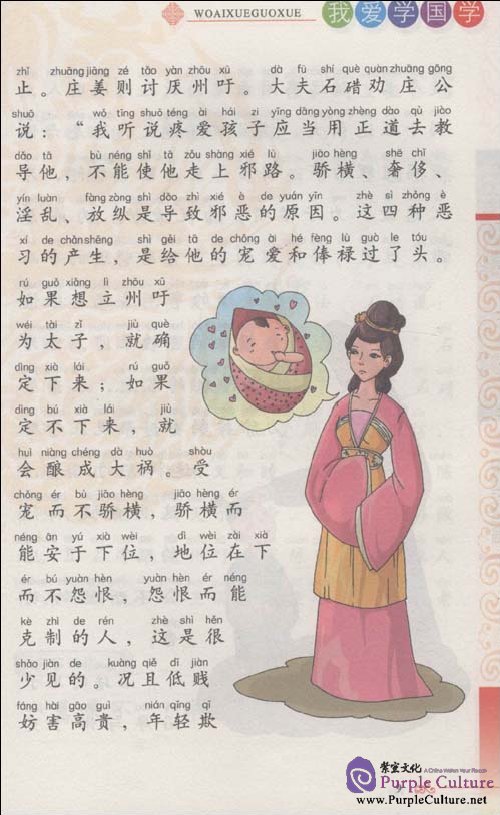 WOAIXUEGUOXUE 我爱学国学
zhǐ zhuāng jiāng zé tǎo yàn zhōu xū dà fū shí què quàn zhuāng gōng
止。庄姜则讨厌州吁。大夫石碏劝庄公
shuō wǒ tīng shuō téng ài hái zi yīng dāng yòng zhèng dào qù jiào
说：“我听说疼爱孩子应当用正道去教
dǎo tā bù néng shǐ tā zǒu shàng xié lù jiāo hèng shē chǐ
导他，不能使他走上邪路。骄横、奢侈、
yín luàn fàng zòng shì dǎo zhì xié è de yuán yīn zhè sì zhǒng è
淫乱、放纵是导致邪恶的原因。这四种恶
xí de chǎn shēng shì gěi tā de chǒng ài hé fèng lù guò le tóu
习的产生，是给他的宠爱和俸禄过了头。
rú guǒ xiǎng lì zhōu xū
如果想立州吁
wéi tài zǐ jiù què
为太子，就确
dìng xià lái rú guǒ
定下来；如果
dìng bú xià lái jiù
定不下来，就
huì niàng chéng dà huò shòu
会酿成大祸。受
chǒng ér bù jiāo hèng jiāo hèng ér
宠而不骄横，骄横而
néng ān yú xià wèi dì wèi zài xià
能安于下位，地位在下
ér bú yuàn hèn yuàn hèn ér néng
而不怨恨，怨恨而能
kè zhì de rén zhè shì hěn
克制的人，这是很
shǎo jiàn de kuàng qiě dī jiàn
少见的。况且低贱
fáng hài gāo guì nián qīng qī
妨害高贵，年轻欺
紫宸文化 A China Written Your Reach
Purple Culture
www.PurpleCulture.net